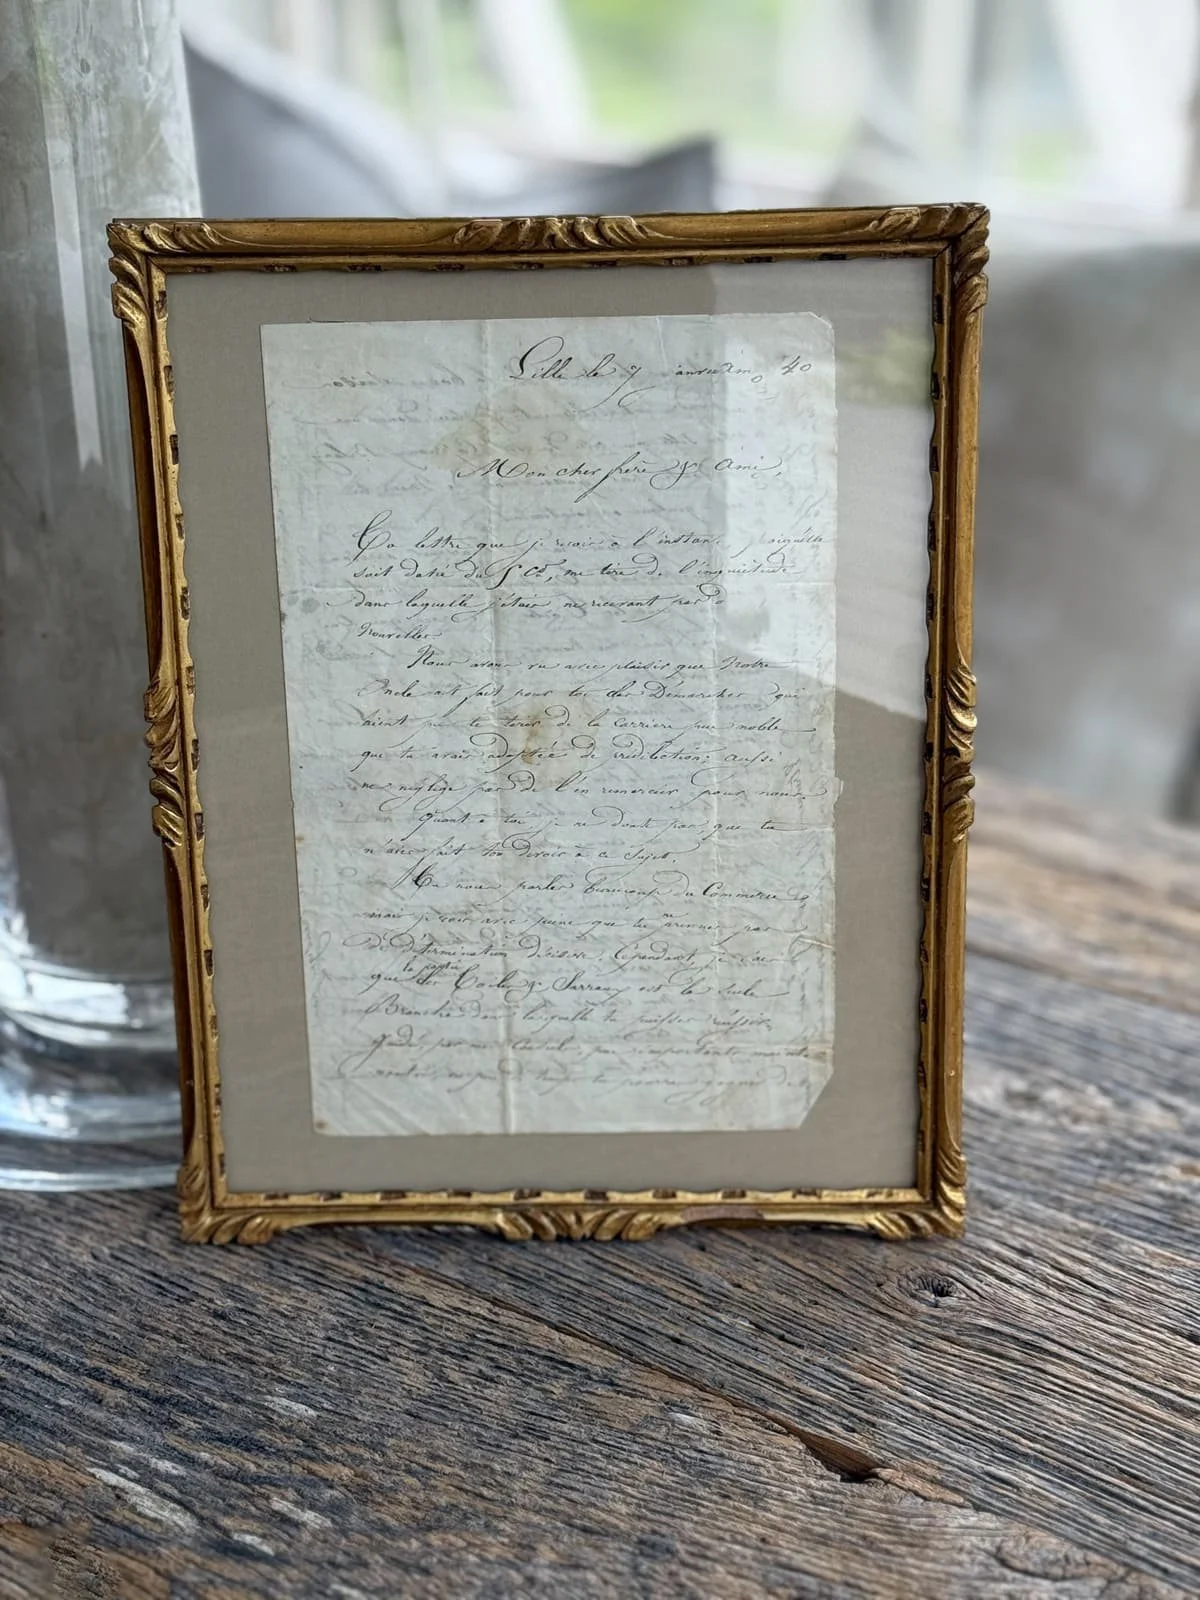 Lille le 7 40
Mon cher frere & Ami,
Ta lettre que je reçois à l'instant, quoiqu'elle
soit datée du 5 Ct, me tire de l'inquiétude
dans laquelle j'étais ne recevant pas de
nouvelles.
Nous avons vu avec plaisir que Notre
Oncle ait fait pour toi des Démarches qui
aient pu te tirer de la carriere peu noble
que tu avais adoptée de prédilection; aussi
ne néglige pas de l'en remercier pour nous.
Quant à toi je ne doute pas que tu
n'aies fait ton devoir à ce Sujet.
Tu nous parles beaucoup du Commerce
mais je vois avec peine que tu ne prennes pas
de détermination décisive. Cependant je crois
que la partie des & est la seule
Branche dans laquelle tu puisses réussir.
par mes peu importants
tu pourras gagner